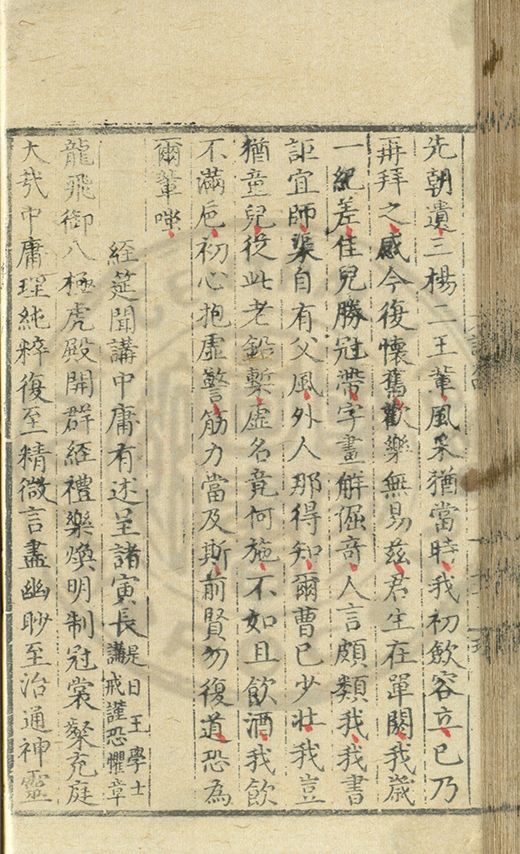 先朝遺三楊二王輩風采猶當時我初飲容立已乃
再拜之感今復懷舊歡樂無易兹君生在單閼我歲
一紀差佳兒勝冠帶字畫解倔奇人言頗類我我書
詎宜師渠自有父風外人那得知爾曹已少壯我豈
猶童兒役此老鉛槧虛名竟何施不如且飲酒我飲
不滿巵初心抱虛警筋力當及斯前賢勿復道恐為
爾輩嗤
經筵聞講中庸有述呈諸寅長是日王學士講戒謹恐懼章
龍飛御八極虎殿開群經禮樂煥明制冠裳粲充庭
大哉中庸理純粹復至精微言盡幽眇至治通神靈